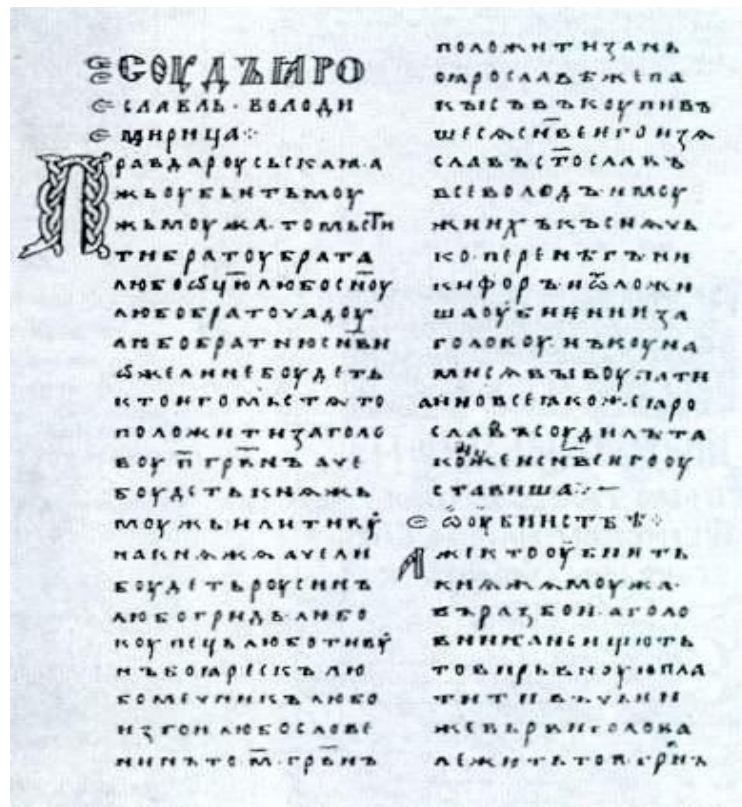 СОУДЪ ꙖРО
СЛАВЛЬ · ВОЛОДИ
МИРИЦА ⁘
Правда роусьскаꙗ · а
жь оубьить моу
жь моужа · то мьсти
ти братоу брата
любо ѡц҃ю любо сн҃оу
любо братоучадоу
любо братню сн҃ви
ѡже ли не боудеть
кто ѥго мьстѧ то
положити за голо
воу п҃ грв҃нъ аче
боудеть кнѧжь
моужь или тивоу
на кнѧжѧ аче ли
боудеть роусинъ
любо гридь любо
коупець любо тивоу
нъ боꙗрескъ лю
бо мечникъ любо
изгои любо слове
нинъ то м҃ грв҃нъ
положити за нь
по ꙗрославѣ же па
кы съвъкоупивъ
шесѧ сн҃ве ѥго изѧ
славъ ст҃ославъ
всеволодъ · и моу
жи ихъ къснѧчь
ко · перенѣгъ ни
кифоръ · и ѿложи
ша оубиѥниѥ за
головоу · нъ коуна
ми сѧ выкоупати
а ино все ꙗкоже ꙗро
славъ соудилъ та
коже и сн҃ве ѥго оу
ставиша ⁘
ѡ оубииствѣ ⁘
Аже кто оубиить
кнѧжѧ моужа ·
въ разбои · а голо
вника не ищють
то вирьвноую пла
тити въ чьѥи
же вьрви голова
лежить то п҃ грв҃нъ